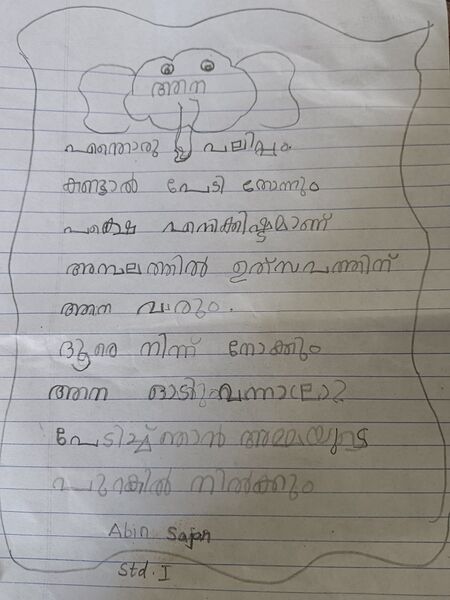 ആന
എന്തൊരു വലിപ്പം
കണ്ടാൽ പേടി തോന്നും
പക്ഷെ എനിക്കിഷ്ടമാണ്
അമ്പലത്തിൽ ഉത്സവത്തിന്
ആന വരും.
ദൂരെ നിന്ന് നോക്കും
ആന ഓടി വന്നാലോ?
പേടിച്ച് ഞാൻ അമ്മയുടെ
പുറകിൽ നിൽക്കും
Abin Sajan
Std. I